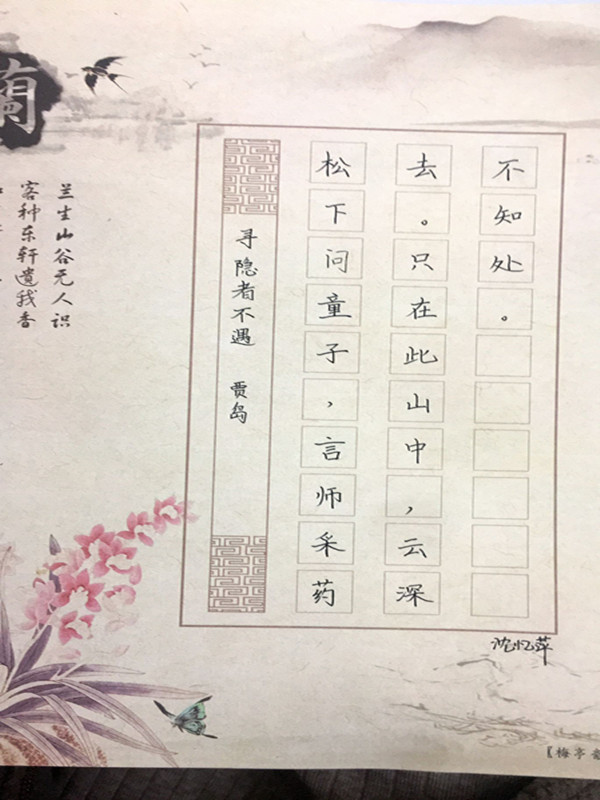 蘭
兰生山谷无人识
客种东轩遗我香
寻隐者不遇 贾岛
松下问童子，言师采药
去。只在此山中，云深
不知处。
沈忆萍
【梅亭